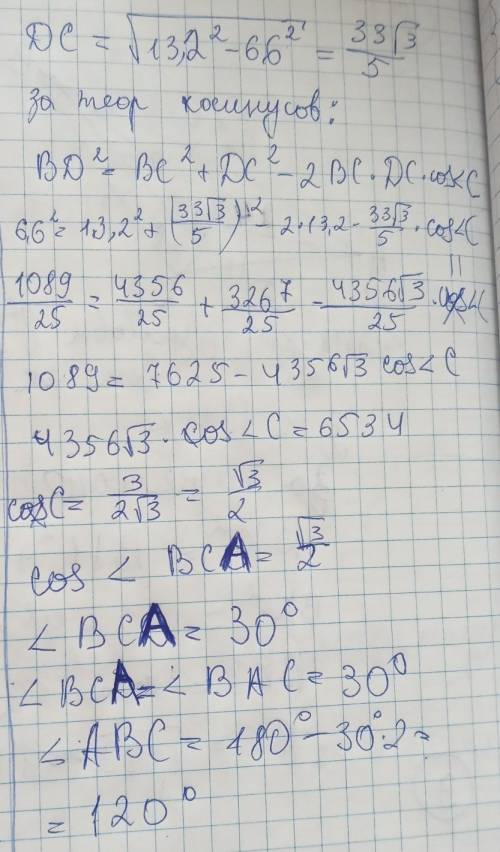 DC = √(13,2² - 6,6²) = 33√3/5
за теор косинусов:
BD² = BC² + DC² - 2BC·DC·cos∠C
6,6² = 13,2² + (33√3/5)² - 2·13,2·33√3/5·cos∠C
1089/25 = 4356/25 + 3267/25 - 4356√3/25·cos∠C
1089 = 7625 - 4356√3 cos∠C
4356√3·cos∠C = 6534
cosC = 3/2√3 = √3/2
cos∠BCA = √3/2
∠BCA = 30°
∠BCA = ∠BAC = 30°
∠ABC = 180° - 30°·2 =
= 120°